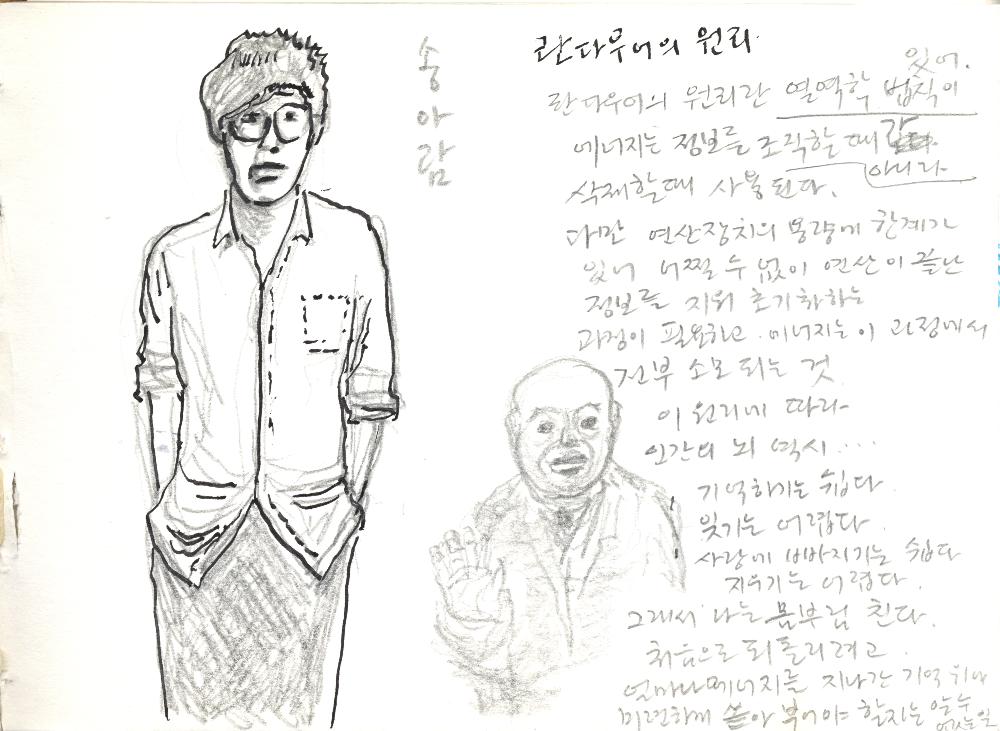 송아람
란다우어의 원리
란다우어의 원리란 열역학 법칙이 있어.
에너지는 정보를 조직할 때 아니라
삭제할때 사용된다.
다만 연산장치의 용량에 한계가
있어 어쩔 수 없이 연산이 끝난
정보를 지워 초기화하는
과정이 필요하고 에너지는 이 과정에서
전부 소모되는 것
이 원리에 따라
인간의 뇌 역시···
기억하기는 쉽다.
잊기는 어렵다.
사랑에 빠지기는 쉽다
지우기는 어렵다.
그래서 나는 몸부림 친다.
처음으로 되돌리려고.
얼마나 에너지를 지나간 기억 위에
미련하게 쏟아 부어야 할지는 알 수 없는 일